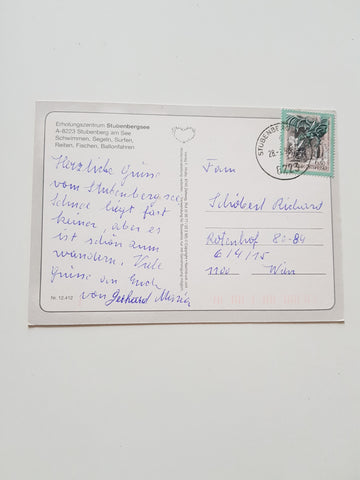 Erholungszentrum Stubenbergsee
A-8223 Stubenberg am See
Schwimmen, Segeln, Surfen,
Reiten, Fischen, Ballonfahren
Herzliche Grüsse
vom Stubenbergsee
Schnee liegt fast
keiner, aber es
ist schön zum
wandern. Viele
Grüsse an Euch
von Gerhard
Nr. 12.412
STUBENBERG
8223
Fam
Schöberl Richard
Rotenhof 82-84
6/4/15
1100 Wien